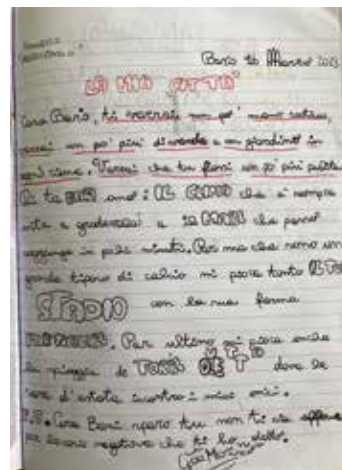 Bari 16 Marzo 2023
LA MIA CITTA'
Cara Bari, ti vorrei un po' meno
vorrei un po' più di verde e un giardino in
ogni rione. Vorrei che tu fossi un po' più pulita
Di te BARI amo: IL CIBO che è sempre
e IL MARE che posso
raggiungere in pochi minuti. Per me che sono un
grande tifoso di calcio mi piace tanto IL TUO
STADIO con la sua forma
Per ultimo mi piace anche
la spiaggia di TORRE QUETTA dove la
sera d'estate incontro i miei amici.
P.S. Cara Bari spero tu non ti sia offesa
per le cose negative che ti ho detto.